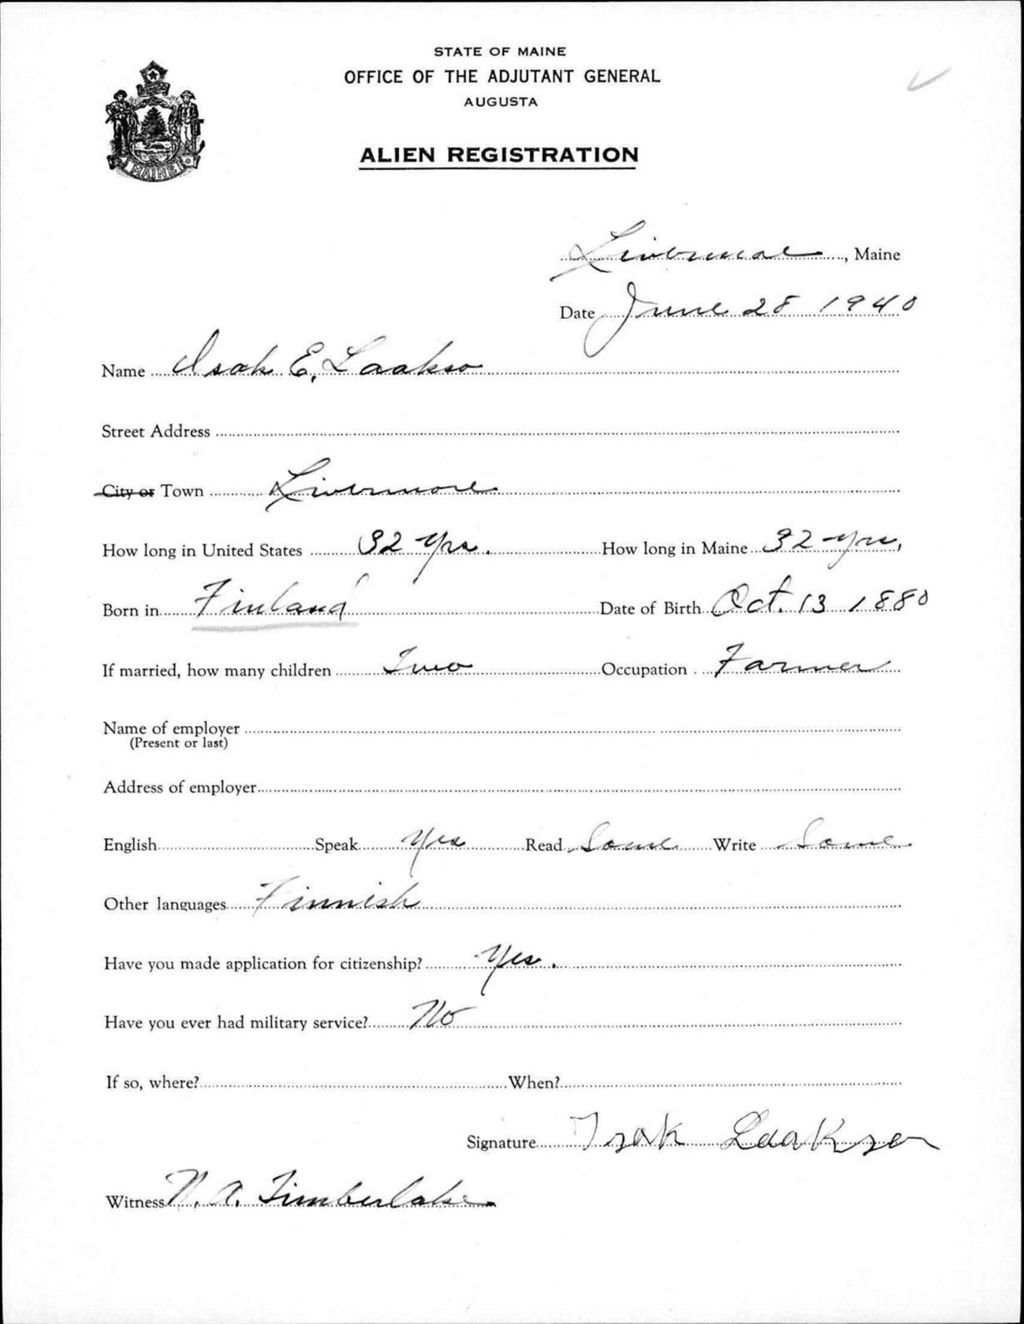 STATE OF MAINE
OFFICE OF THE ADJUTANT GENERAL
AUGUSTA
ALIEN REGISTRATION
MAINE
Livermore, Maine
Date June 28 1940
Name Isak E. Laakso
Street Address
City or Town Livermore
How long in United States 32 yrs. How long in Maine 32 yrs.
Born in Finland Date of Birth Oct. 13 1880
If married, how many children Two Occupation Farmer
Name of employer
(Present or last)
Address of employer
English Speak Yes Read Some Write Some
Other languages Finnish
Have you made application for citizenship? Yes.
Have you ever had military service? No
If so, where? When?
Signature Isak Laakso
Witness N. A. Timberlake